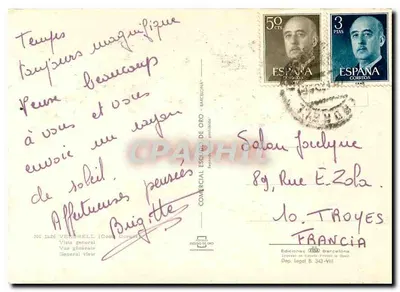 Temps
toujours magnifique
Pense beaucoup
à vous et vous
envoie un rayon
de soleil.
Affectueuses pensées
Brigitte
Vista general
Vue générale
General view
COMERCIAL ESCUDO DE ORO - BARCELONA
50 CTS
ESPAÑA
CORREOS
3 PTAS
ESPAÑA
CORREOS
CPAPHIL
Salon Jocelyne
89, Rue E. Zola.
10. TROYES
FRANCIA
Dep. legal B.